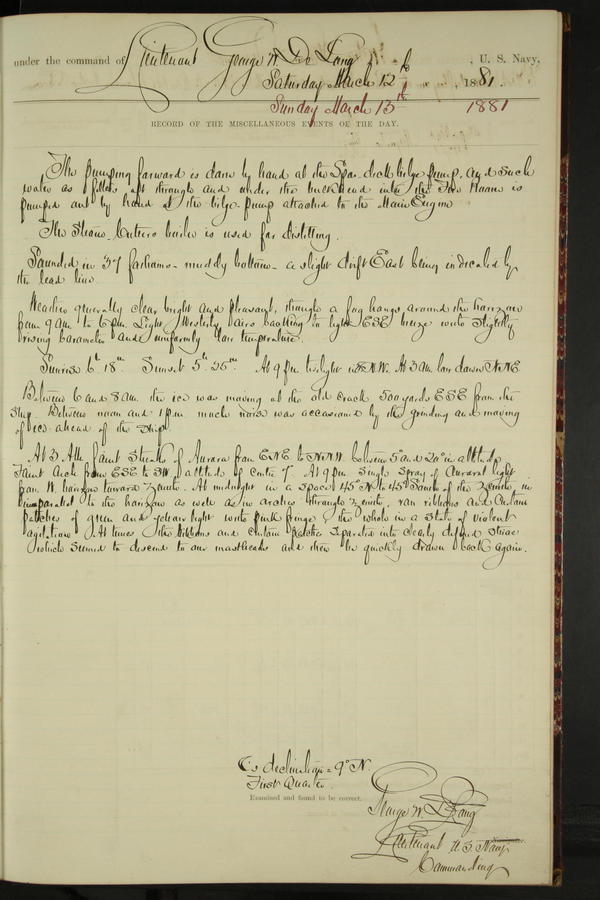 under the command of Lieutenant George W. De Long, U. S. Navy,
Saturday March 12th, 1881.
Sunday March 13th 1881
RECORD OF THE MISCELLANEOUS EVENTS OF THE DAY.
The pumping forward is done by hand at the Spar deck bilge pump, and such
water as filters aft through and under the bulkhead into the Fire Room is
pumped out by hand at the bilge pump attached to the Main Engine
The Steam Cutter's boiler is used for distilling.
Sounded in 37 fathoms - muddy bottom - a slight drift East being indicated by
the lead line.
Weather generally clear bright and pleasant, though a fog hangs around the horizon
from 9 am to 6 pm. Light Westerly airs backing to light ESE breeze with slightly
rising barometer and uniformly low temperature.
Sunrise 6h 18m Sunset 5h 35m. At 9 pm twilight in NNW. At 3 am dawn NNE
Between 6 and 8 am the ice was moving at the old crack 500 yards ESE from the
Ship. Between noon and 1 pm much noise was occasioned by the grinding and moving
of ice ahead of the Ship
At 3 AM faint Streaks of Aurora from ENE to NNW between 5° and 20° in altitude
Faint Arch from ESE to SW altitude of centre 7°. At 9 pm single Spray of Auroral light
from W. horizon toward zenith. At midnight in a space 45° N to 45° South of the Zenith in
to the horizon as well as in arches through zenith, ran ribbons and Curtain
patches of green and yellow light with pink fringe, the whole in a State of violent
agitation. At times the Ribbons and Curtain patches Separated into clearly defined Striae
which seemed to descend to our mastheads and then be quickly drawn back again.
☾'s declination = 9° N.
First Quarter
Examined and found to be correct.
George W. De Long
Lieutenant U.S. Navy
Navigator.
Commanding